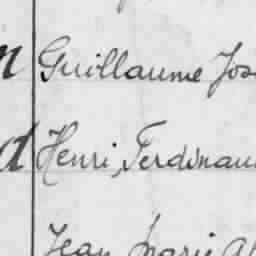 Guillaume
Henri, Ferdinand
Jean Marie